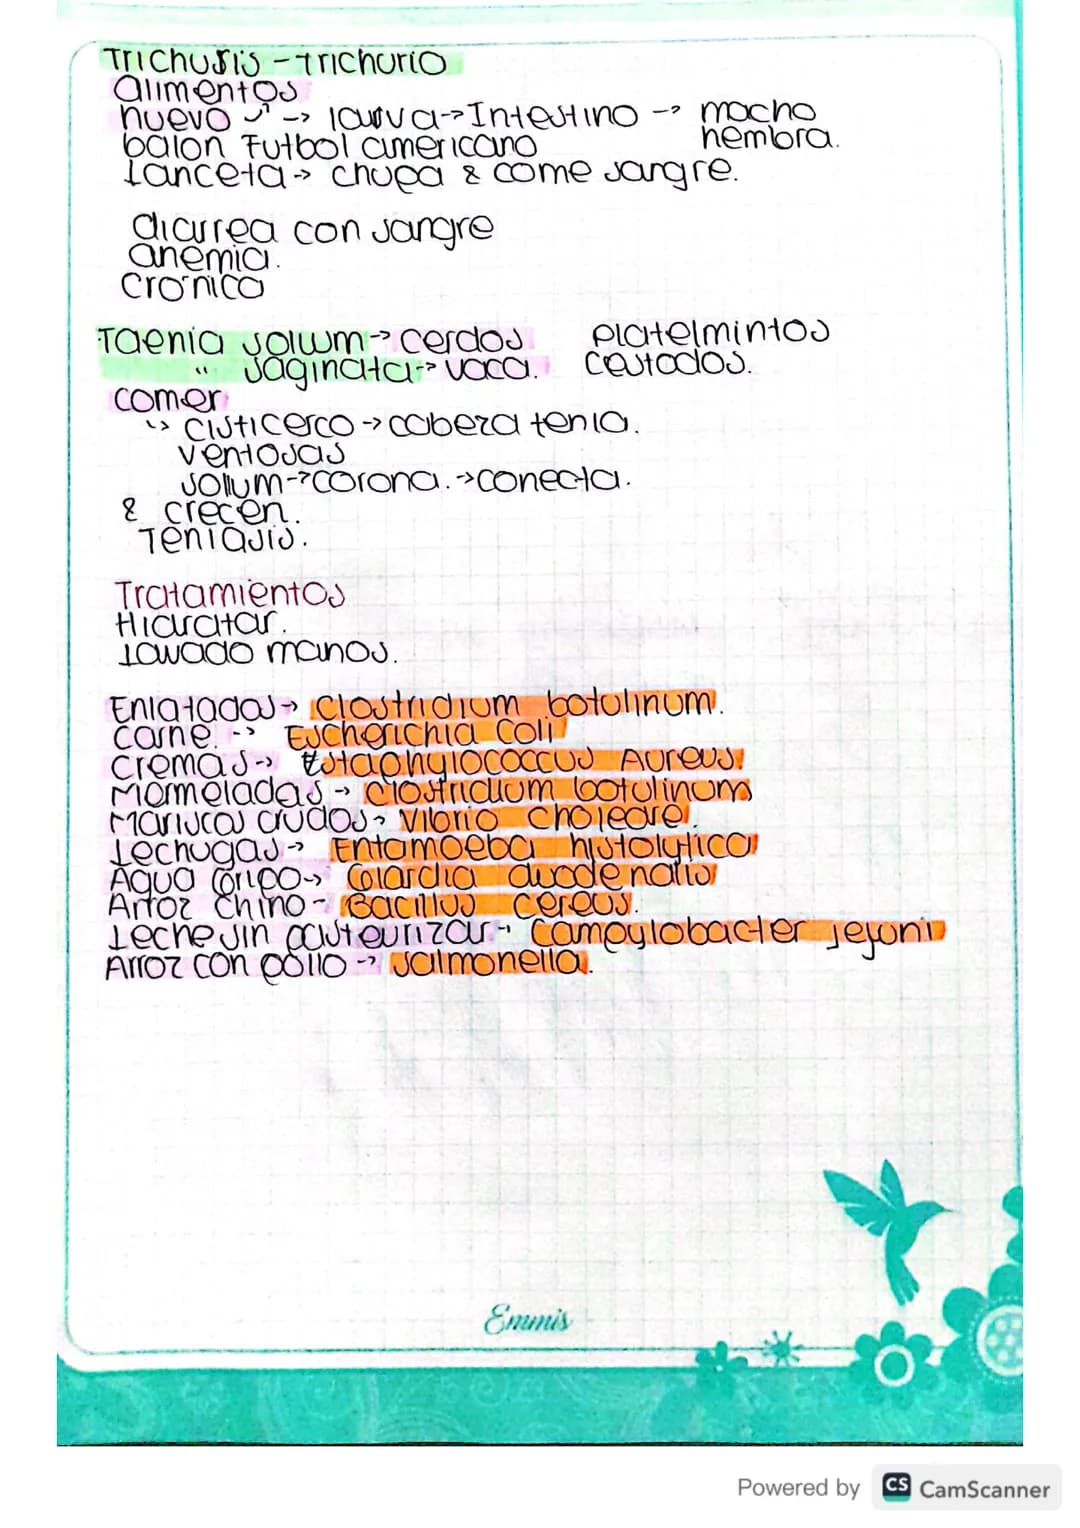 Trichuris - trichurio
alimentos
huevo -> larva -> Intestino -> macho
hembra.
balon Futbol americano
Lanceta -> chupa & come sangre.
diarrea con sangre
anemia.
Crónico
Taenia solium -> cerdos. Platelmintos
" saginata -> vaca. cestodos.
comer
↳ cisticerco -> cabeza tenia.
ventosas
solium -> corona. -> conecta.
& crecen.
Teniasis.
Tratamientos
Hidratar.
Lavado manos.
Enlatados -> Clostridium botulinum.
Carne. -> Escherichia Coli
Cremas -> Estaphylococcus Aureus.
Mermeladas -> Clostridium botulinum
Mariscos crudos -> Vibrio choleare.
Lechugas -> Entamoeba histolytica
Agua Gripo -> Giardia duodenalis
Arroz Chino - Bacillus cereus.
Leche sin pasteurizar -> Campylobacter jejuni
Arroz con pollo -> Salmonella.
Emmis
Powered by CS CamScanner